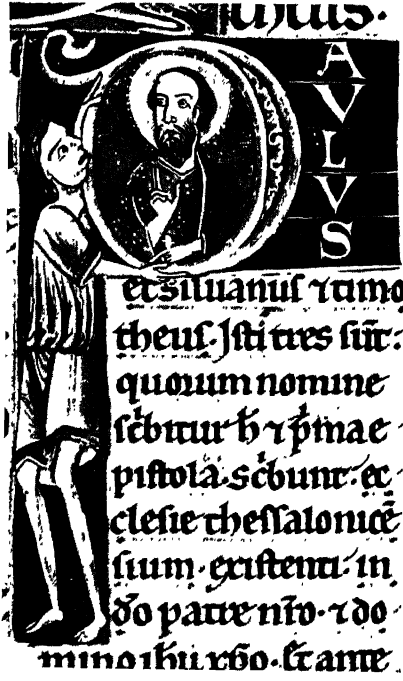 PAVLVS
et siluanus ⁊ timo
theus. Isti tres sūt:
quorum nomine
sc̄bitur h̄ ⁊ p̄mae
pistola. Sc̄bunt. ec
clesie thessalonicē
sium. existenti. in
d̄o patre nr̄o. ⁊ do
mino ih̄u xp̄o. Et ante